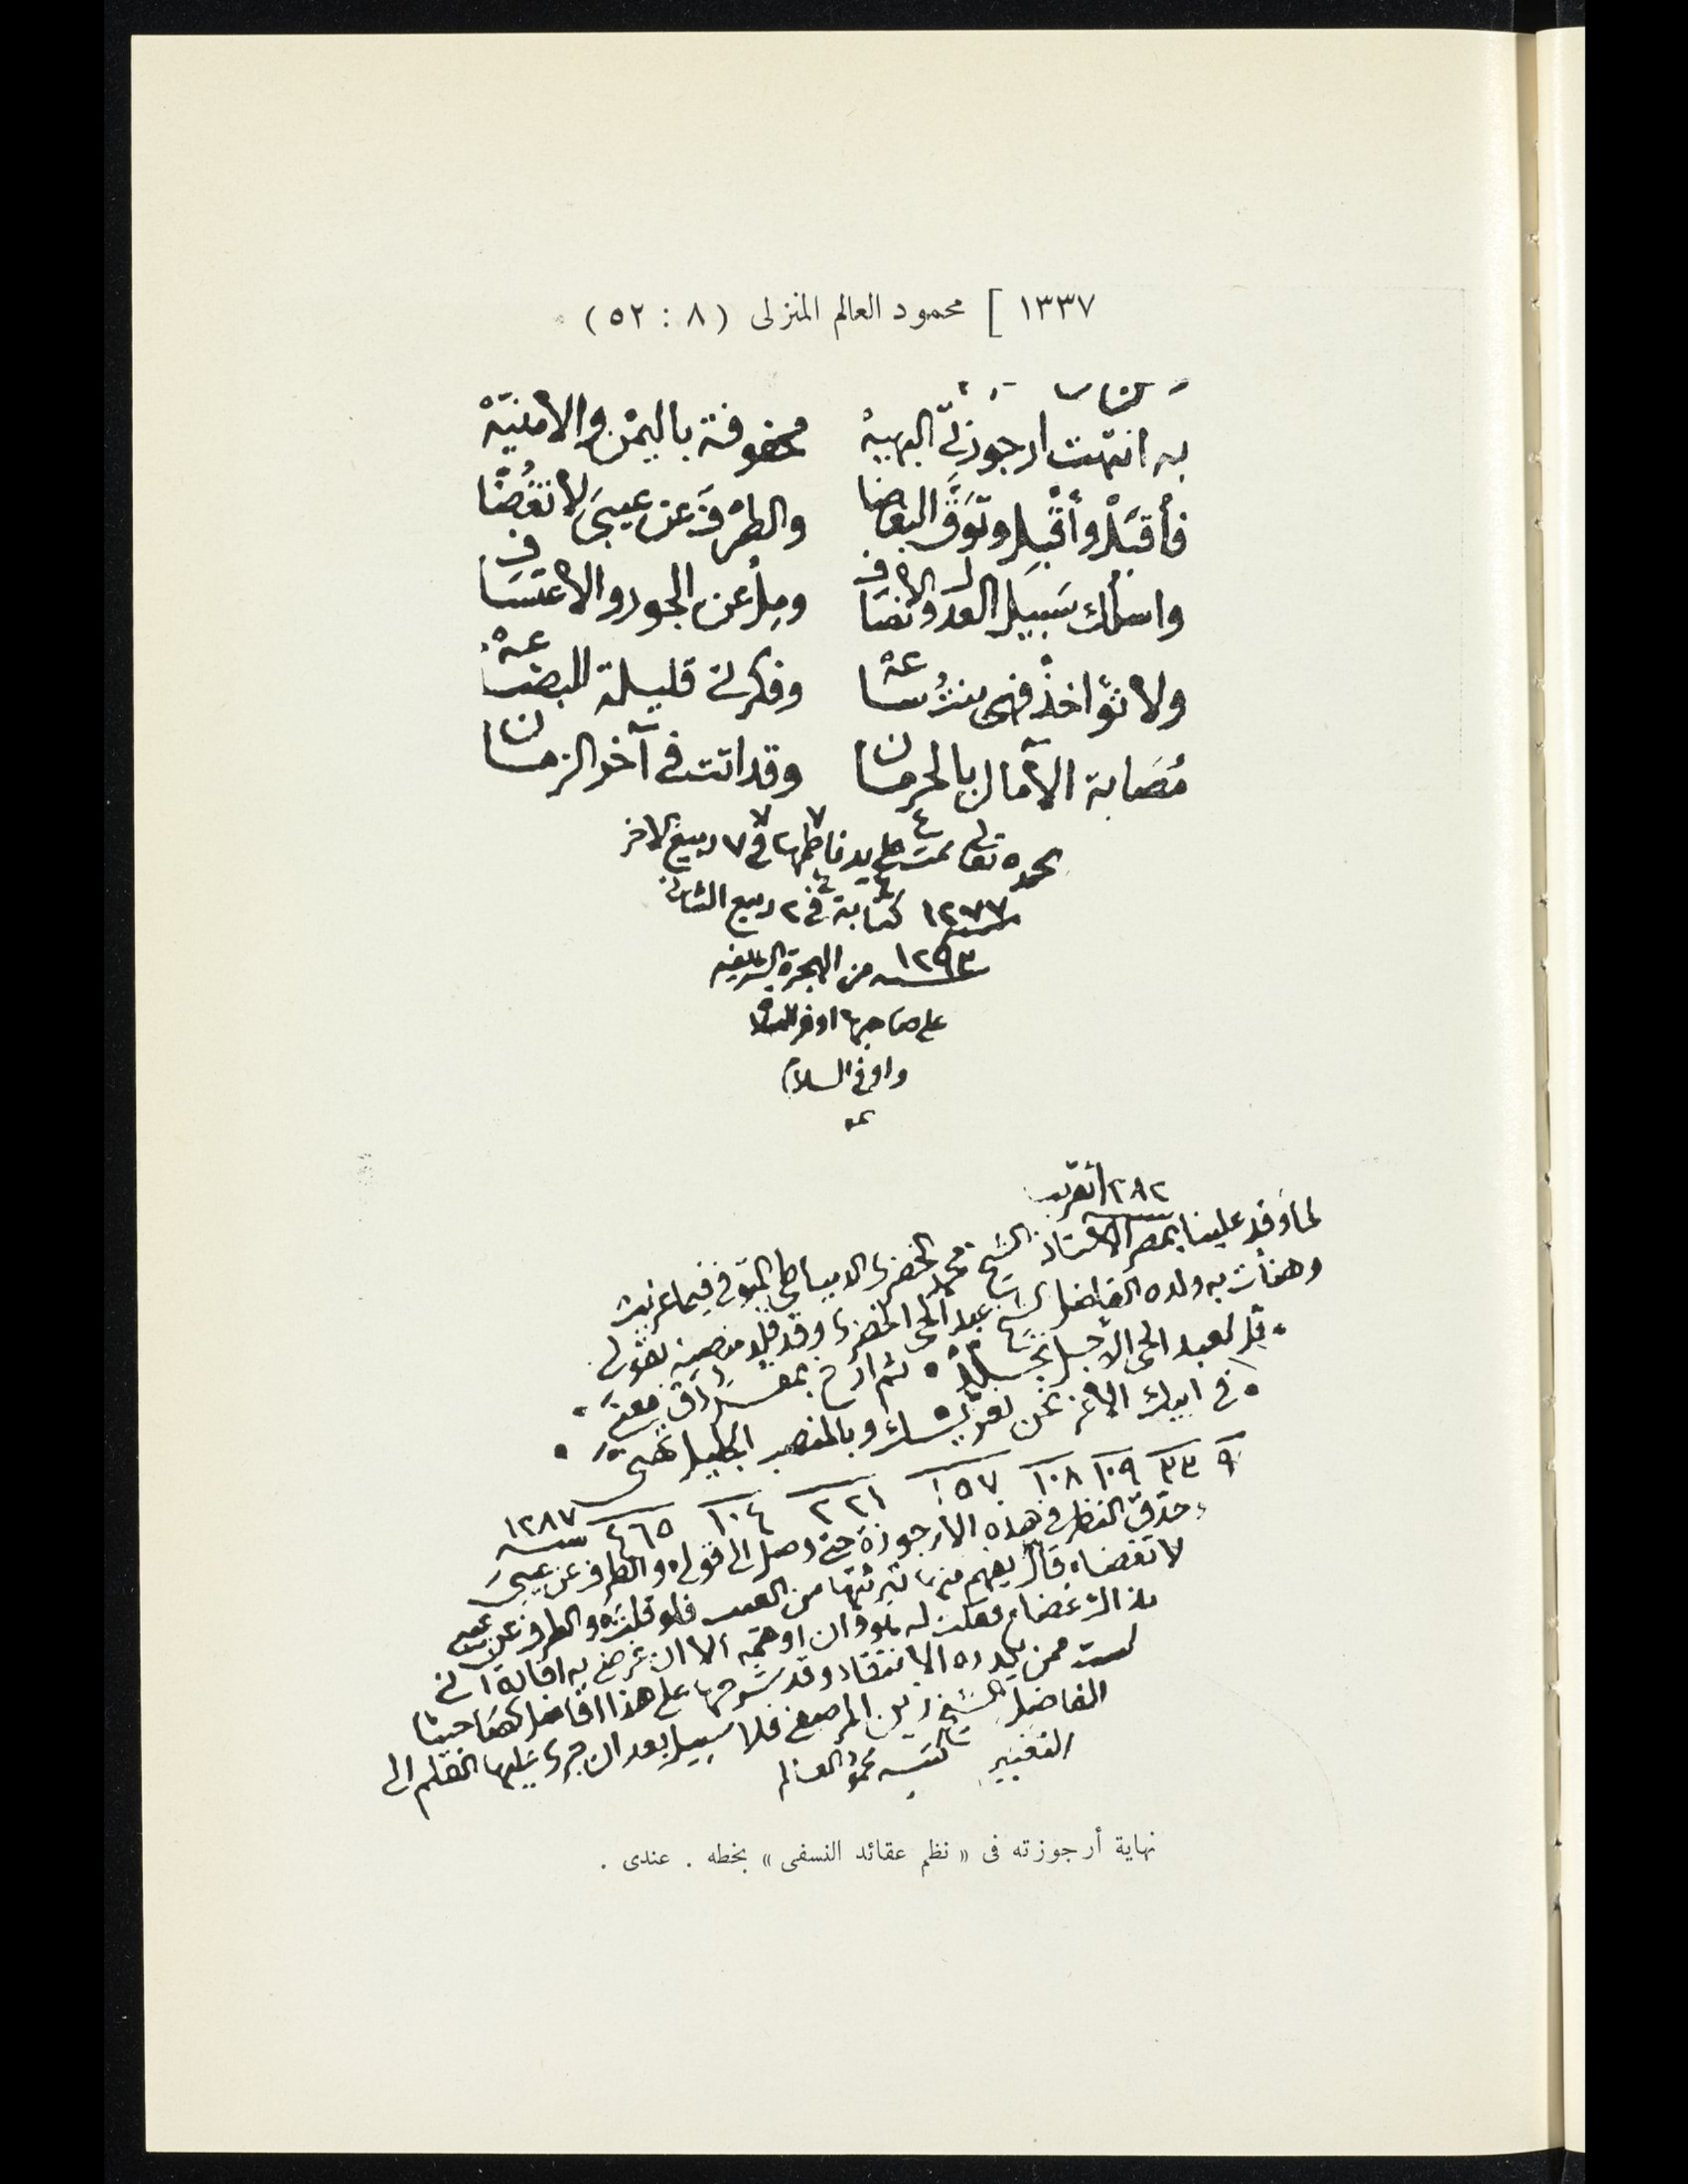 ١٣٣٧ ] محمود العالم المنزلى ( ٨ : ٥٢ )
به انتهت ارجوزتي البهيهْ محفوفة باليمْن والامنيّهْ
فأقبَلْ وأقْبِل وتَوَقَّ البغضا والطرْفَ عن عيبىَ لا تغُضّا
واسلك سَبيل العدل والانصاف ومِلْ عن الجور والاعتساف
ولا تؤاخذْ فهى بنتُ ساعهْ وفكرتي قليلة البضاعهْ
مُصَابة الآمال بالحرمان وقد اتت فى آخر الزمان
بحمده تعالى تمت على يد ناظمها فى ٧ ربيع الاخر
١٢٧٧ كتابة فى ٢ ربيع الثانى
١٢٩٣ من الهجرة الشريفه
على صاحبها اوفر الصلاة
واوفى السلام
لما وفد علينا بمصر الاستاذ الشيخ محمد الخضرى الدمياطى المتوفى فيما
وهنأت به ولده الفاضل الشيخ عبد الحى الخضرى وقد قلد منصبه بقولى
قل لعبد الحى الاجل ثم ارخ
فى ابيك الاغر نحن نعزيك وبالمنصب الجليل نهنى
٩ ٣٣ ١٠٩ ١٠٨ ١٥٧ ٢٢١ ١٠٤ ٤٦٥ سنه ١٢٨٧
حدق النظر فى هذه الارجوزة حتى وصل الى قوله والطرف عن عيبىَ
لا تغضا، قال يفهم منها تبرئتها من العيب فلو قلت والطرف عن عيبى
الا ان غرضى به افادة انى
لست ممن يكدره الانتقاد وقد شرحها على هذا افاضل كصاحبنا
الفاضل الشيخ زين المرصفى فلا سبيل بعد ان جرى عليها القلم الى
الفقير كتبه محمود العالم
نهاية أرجوزته فى « نظم عقائد النسفى » بخطه . عندى .